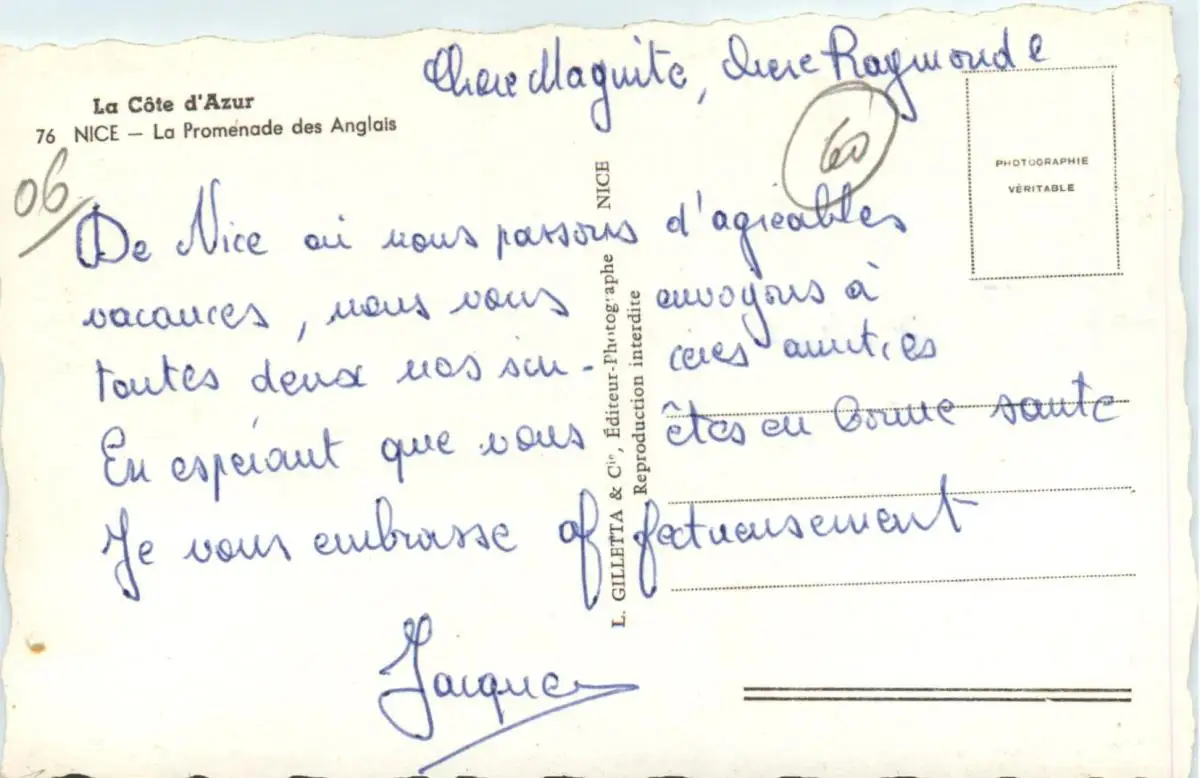 Chere Maguite, chere Raymonde
La Côte d'Azur
76 NICE — La Promenade des Anglais
06
60
PHOTOGRAPHIE
VÉRITABLE
De Nice où nous passons d'agréables
vacances, nous vous envoyons à
toutes deux nos sin-cères amitiés
En espérant que vous êtes en bonne santé
Je vous embrasse affectueusement
Jacques
L. GILLETTA & Cie, Éditeur-Photographe NICE
Reproduction interdite